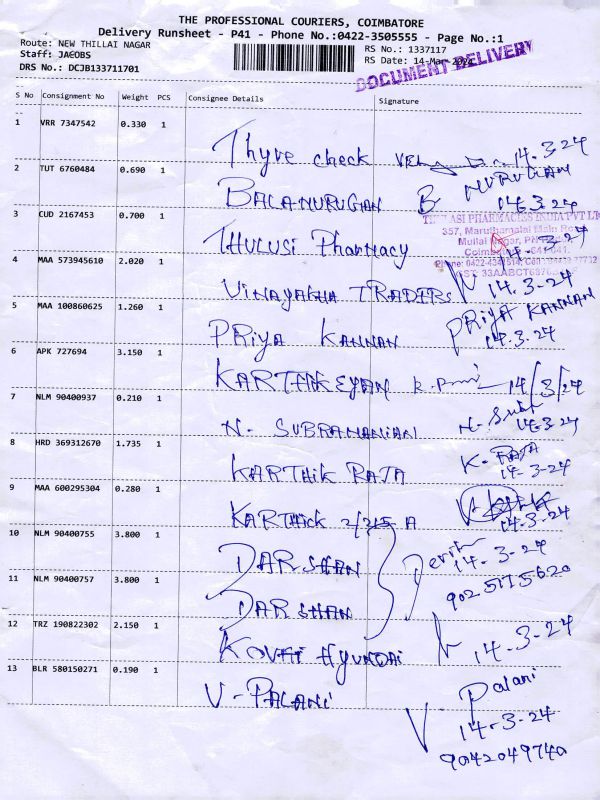 THE PROFESSIONAL COURIERS, COIMBATORE
Delivery Runsheet - P41 - Phone No.:0422-3505555 - Page No.:1
Route: NEW THILLAI NAGAR RS No.: 1337117
Staff: JACOBS RS Date: 14-Mar-2024
DRS No.: DCJB133711701
DOCUMENT DELIVERY
S No Consignment No Weight PCS Consignee Details Signature
1 VRR 7347542 0.330 1
Thyre check 14.3.24
2 TUT 6760484 0.690 1 MURUGAN
BALAMURUGAN B 14.3.24
3 CUD 2167453 0.700 1
PHARMACIES INDIA PVT LT
357, Maruthamalai Main Ro
THULUSI Pharmacy 14-3-24
4 MAA 573945610 2.020 1
VINAYAGHA TRADERS 14.3-24
5 MAA 100860625 1.260 1 PRIYA KANNAN
PRIYA KANNAN 14.3.24
6 APK 727694 3.150 1
KARTHIKEYAN 14/3/24
7 NLM 90400937 0.210 1
N. SUBRAMANIAN 14.3-24
8 HRD 369312670 1.735 1 K. RAJA
KARTHIK RAJA 14-3-24
9 MAA 600295304 0.280 1
KARTHICK 2/215 A 14.3-24
10 NLM 90400755 3.800 1
DARSHAN 14-3-24
11 NLM 90400757 3.800 1 9025175620
DARSHAN
12 TRZ 190822302 2.150 1
KOVAI HYUNDAI 14-3-24
13 BLR 580150271 0.190 1
V-PALANI V. Palani
14-3-24
9042049740